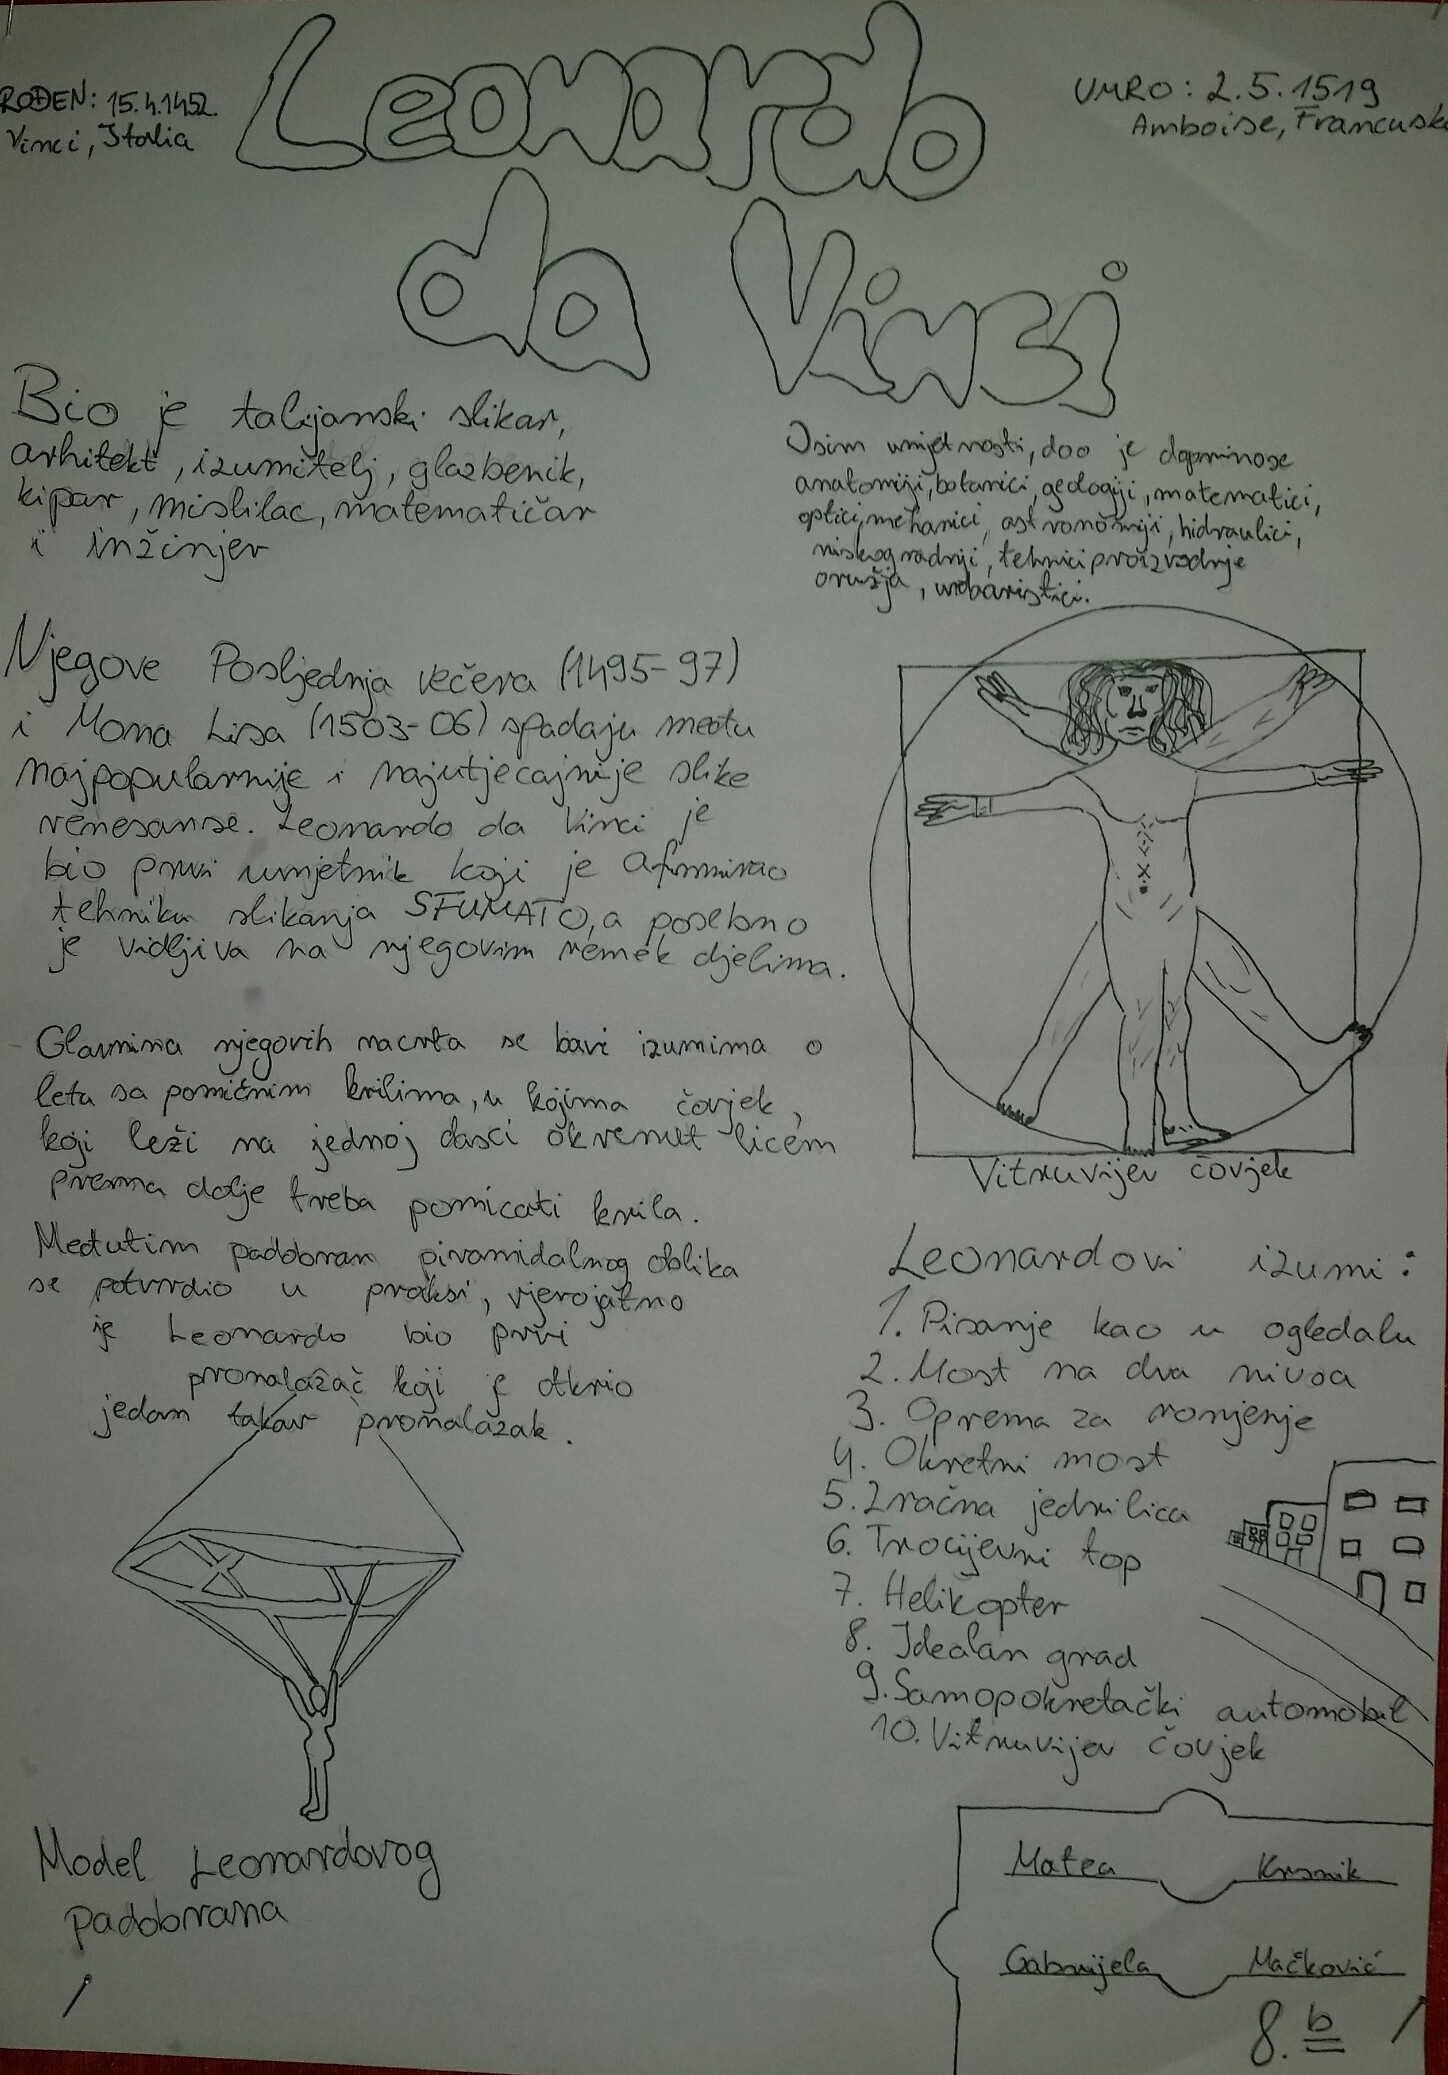 Leonardo
da Vinci
ROĐEN: 15.4.1452.
Vinci, Italia
UMRO: 2.5.1519
Amboise, Francusk
Bio je talijanski slikar,
arhitekt, izumitelj, glazbenik,
kipar, mislilac, matematičar
i inžinjer
Osim umjetnosti, dao je doprinose
anatomiji, botanici, geologiji, matematici,
optici, mehanici, astronomiji, hidraulici,
niskogradnji, tehnici proizvodnje
oružja, urbaristici.
Njegove Posljednja večera (1495-97)
i Mona Lisa (1503-06) spadaju među
najpopularnije i najutjecajnije slike
renesanse. Leonardo da Vinci je
bio prvi umjetnik koji je afirmirao
tehniku slikanja SFUMATO, a posebno
je vidljiva na njegovim remek djelima.
Glavnina njegovih nacrta se bavi izumima o
leta sa pomičnim krilima, u kojima čovjek,
koji leži na jednoj dasci okrenut licem
prema dolje treba pomicati krila.
Međutim padobran piramidalnog oblika
se potvrdio u praksi, vjerojatno
je Leonardo bio prvi
pronalazač koji je otkrio
jedan takav pronalazak.
Model Leonardovog
padobrana
Vitruvijev čovjek
Leonardovi izumi:
1. Pisanje kao u ogledalu
2. Most na dva nivoa
3. Oprema za ronjenje
4. Okretni most
5. Zračna jedrilica
6. Trocijevni top
7. Helikopter
8. Idealan grad
9. Samopokretački automobil
10. Vitruvijev čovjek
Matea Krsnik
Gabrijela Mačković
8. b